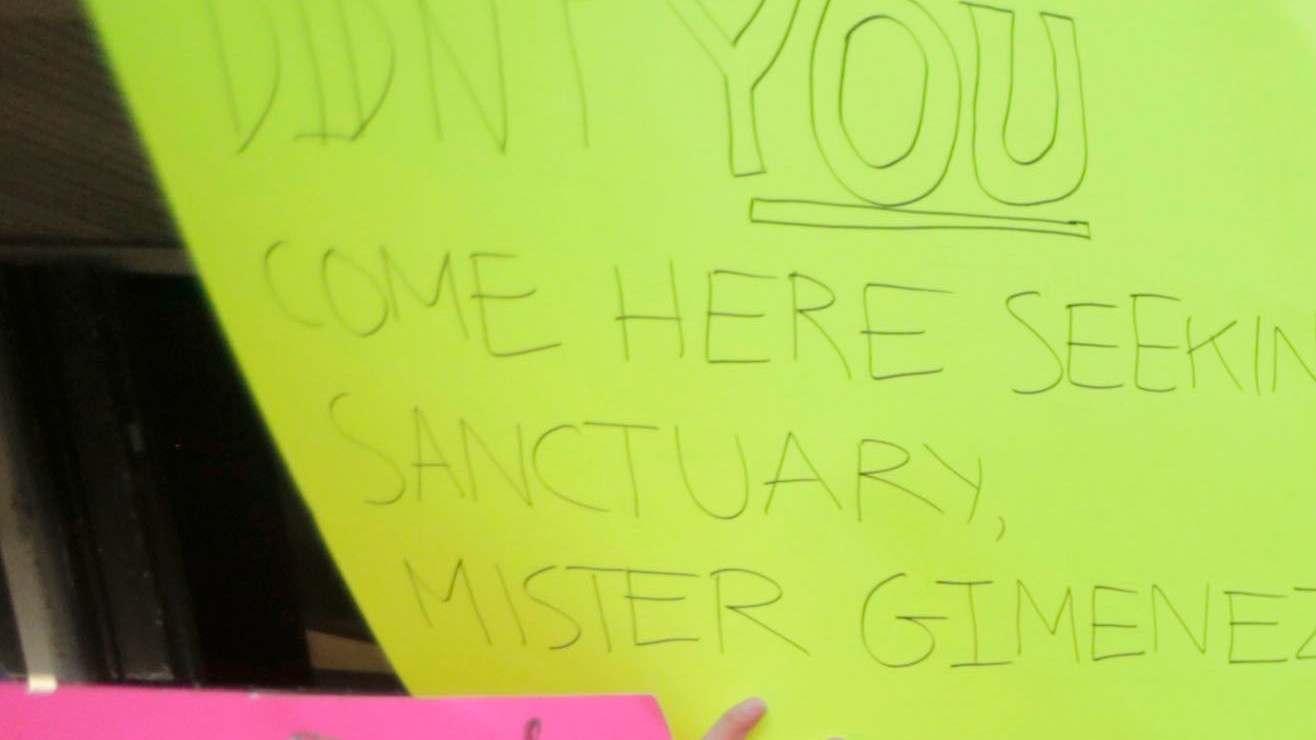 DIDNT YOU
COME HERE SEEKIN
SANCTUARY,
MISTER GIMENEZ